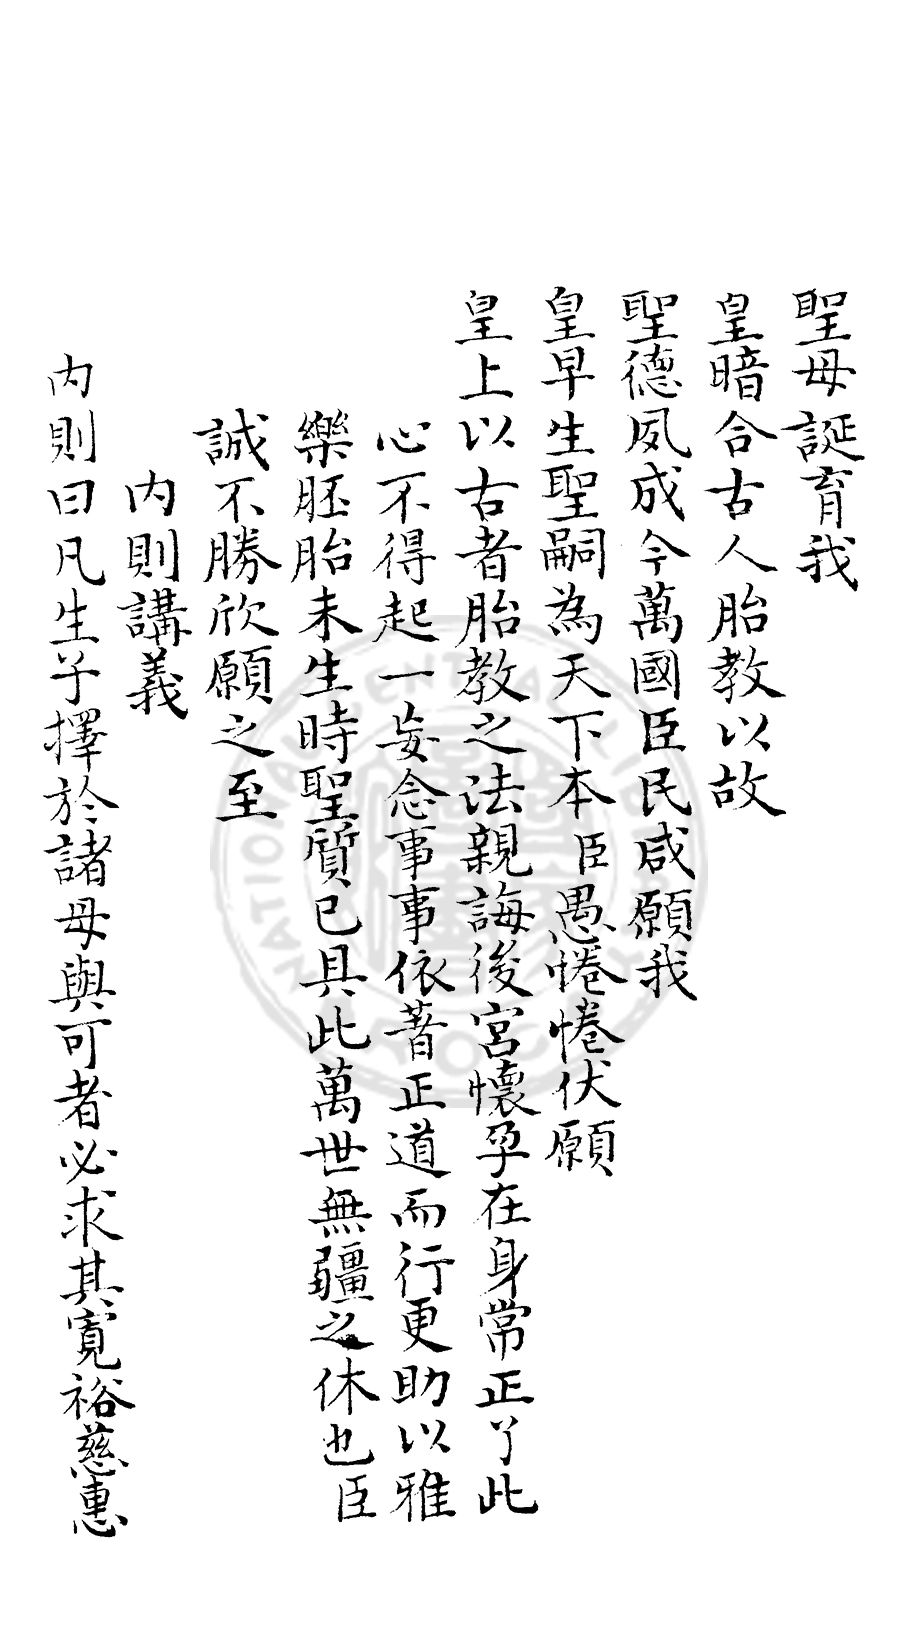 聖母誕育我
皇暗合古人胎教以故
聖德夙成今萬國臣民咸願我
皇早生聖嗣為天下本臣愚惓惓伏願
皇上以古者胎教之法親誨後宮懷孕在身常正了此
心不得起一妄念事事依著正道而行更助以雅
樂胚胎未生時聖質已具此萬世無疆之休也臣
誠不勝欣願之至
內則講義
內則曰凡生子擇於諸母與可者必求其寬裕慈惠